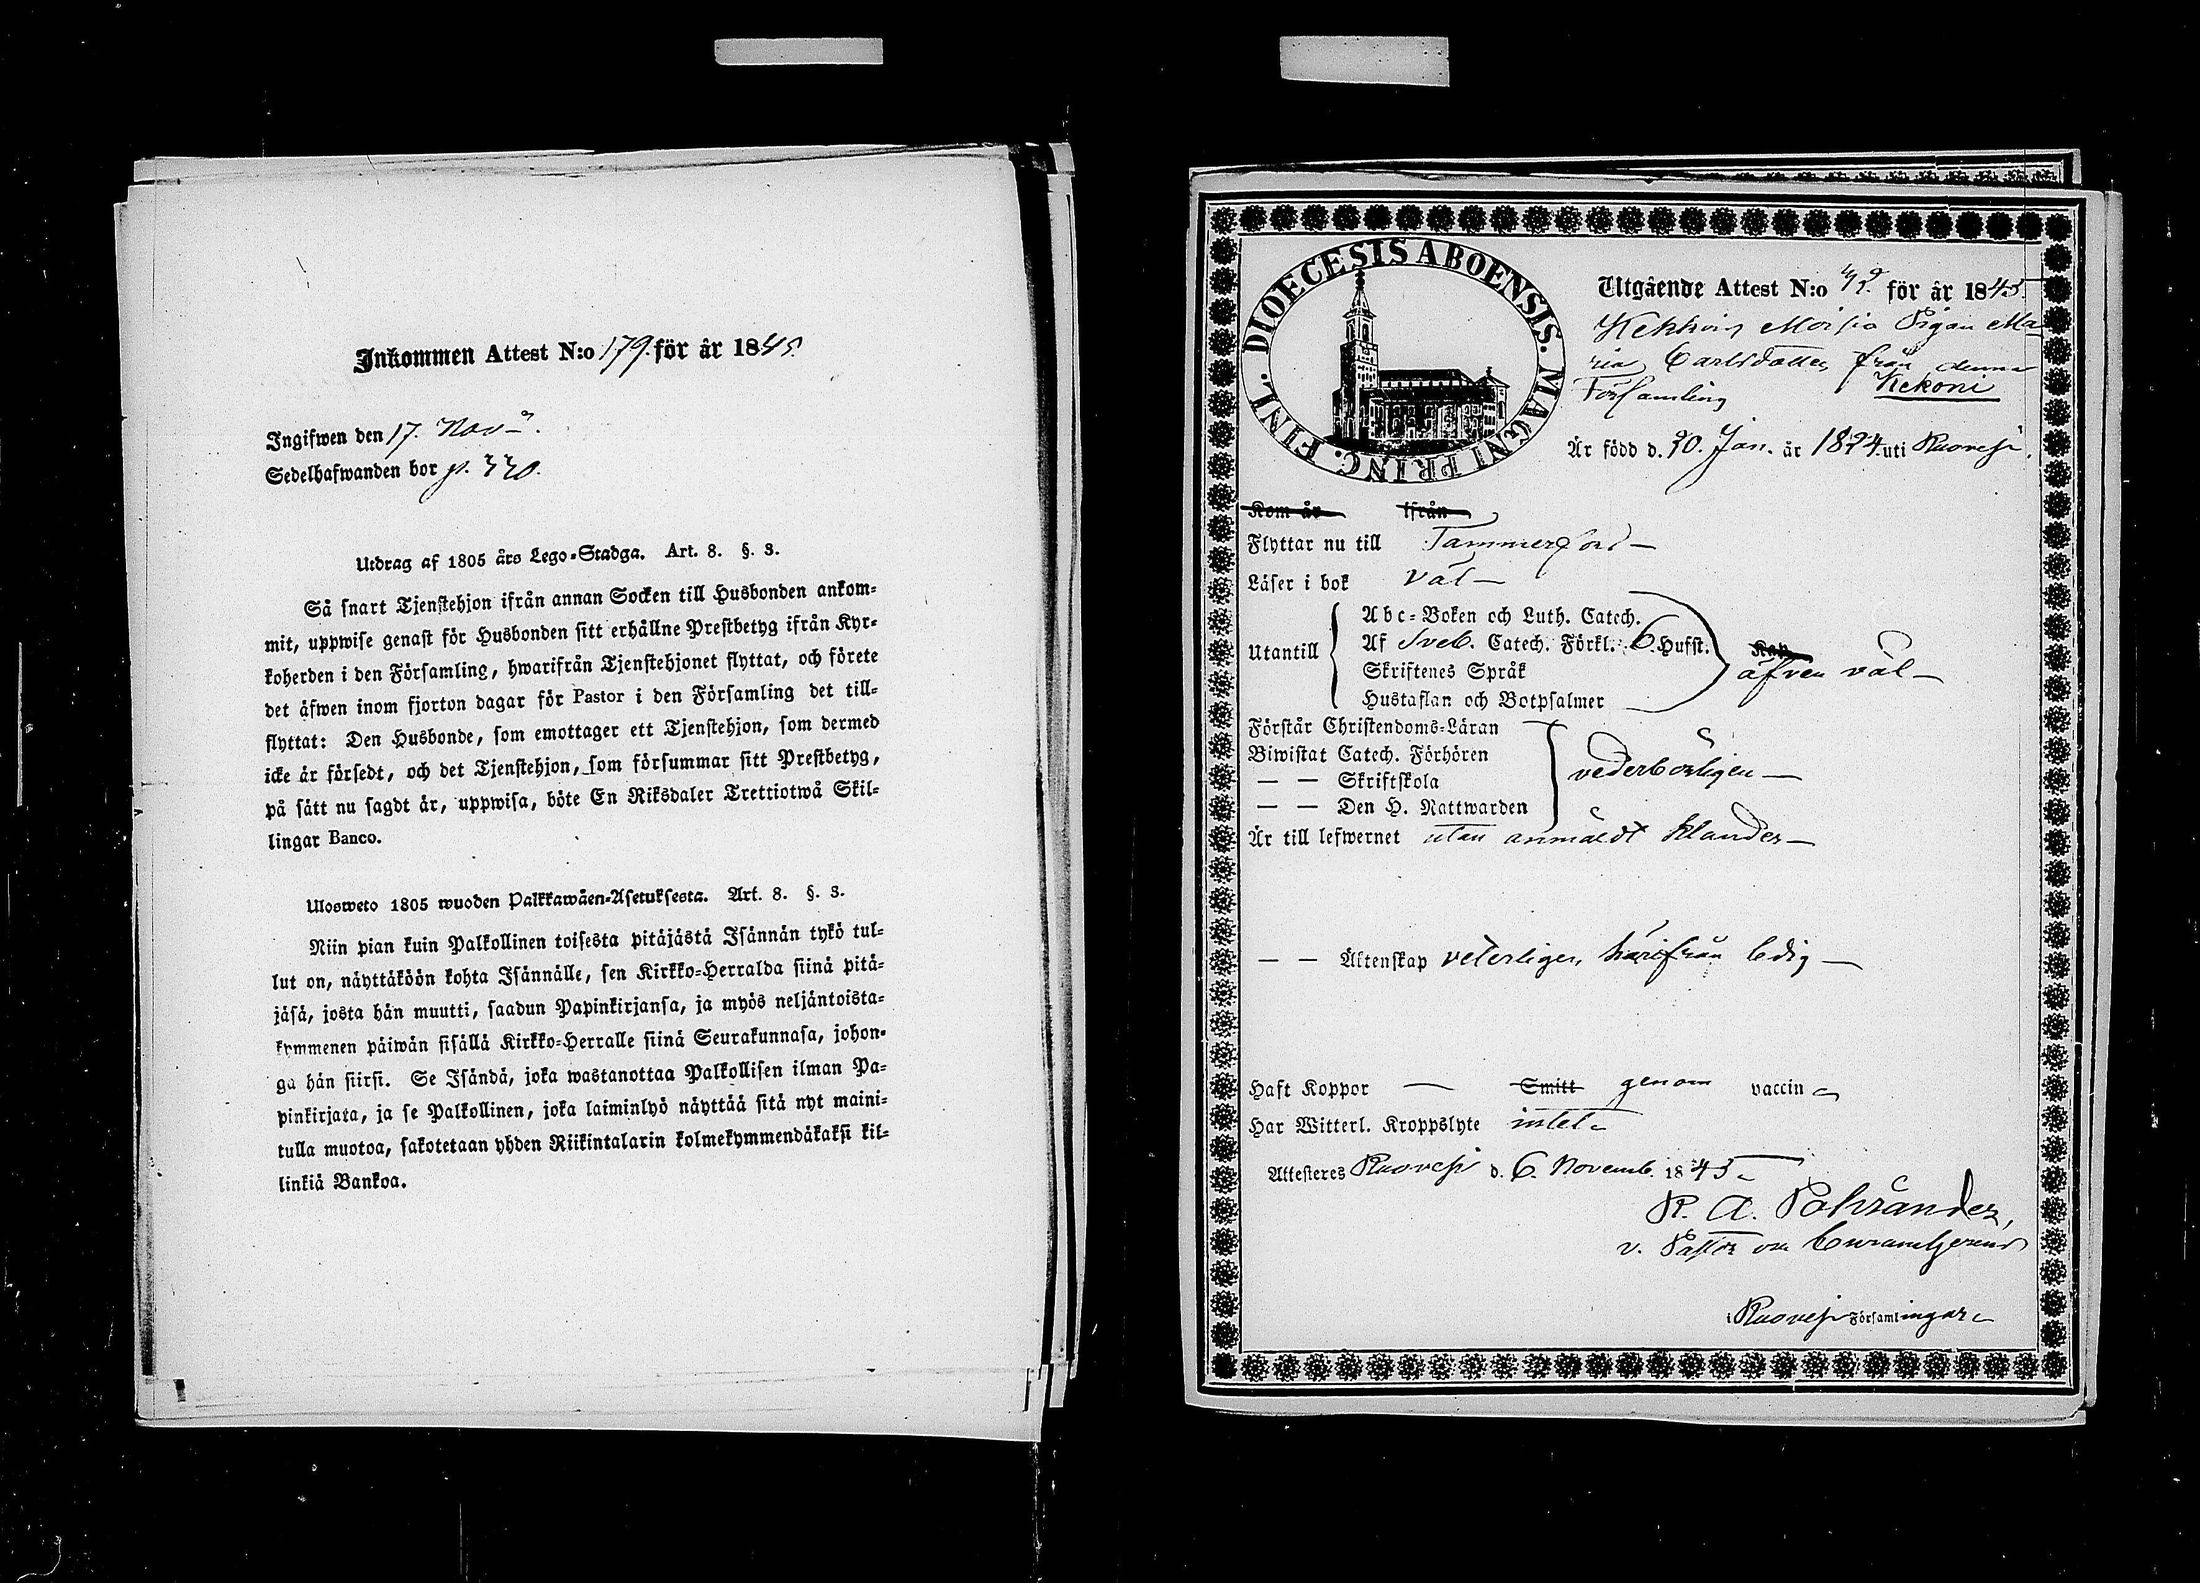 Inkommen Attest N:o 179. för år 1845.
Ingifwen den 17. Nov.
Sedelhafwanden bor p. 330.
Utdrag af 1805 års Lego-Stadga. Art. 8. §. 3.
Så snart Tjenstehjon ifrån annan Socken till Husbonden ankom-
mit, uppwise genast för Husbonden sitt erhållne Prestbetyg ifrån Kyr-
koherden i den Församling, hwarifrån Tjenstehjonet flyttat, och förete
det äfwen inom fjorton dagar för Pastor i den Församling det till-
flyttat: Den Husbonde, som emottager ett Tjenstehjon, som dermed
icke är försedt, och det Tjenstehjon, som försummar sitt Prestbetyg,
på sätt nu sagdt är, uppwisa, böte En Riksdaler Trettiotwå Skil-
lingar Banco.
Ulosweto 1805 wuoden Palkkawäen-Asetuksesta. Art. 8. §. 3.
Niin pian kuin Palkollinen toisesta pitäjästä Isännän tykö tul-
lut on, näyttäköön kohta Isännälle, sen Kirkko-Herralda siinä pitä-
jäsä, josta hän muutti, saadun Papinkirjansa, ja myös neljäntoista-
kymmenen päiwän sisällä Kirkko-Herralle siinä Seurakunnasa, johon-
ga hän siirsi. Se Isändä, joka wastanottaa Palkollisen ilman Pa-
pinkirjata, ja se Palkollinen, joka laiminlyö näyttää sitä nyt maini-
tulla muotoa, sakotetaan yhden Riikintalarin kolmekymmendäkaksi kil-
linkiä Bankoa.
DIOECESIS ABOENSIS. MAGNI PRINC. FINL.
Utgående Attest N:o för år 1845.
Pigan Ma-
ria Carlsdotter från denna
Församling Kekoni
Är född d. 20. Jan. år 1824. uti Ruovesi.
Kom år ifrån
Flyttar nu till Tammerfors
Läser i bok väl
Abc-Boken och Luth. Catech.
Utantill Af Sveb. Catech. Förkl. 6 Hufst. Kap
Skriftenes Språk äfven väl
Hustaflan och Botpsalmer
Förstår Christendoms-Läran
Biwistat Catech. Förhören
— — Skriftskola vederbörligen
— — Den H. Nattwarden
Är till lefwernet utan anmäldt klander
— — Äktenskap veterligen härifrån ledig
Haft Koppor — Smitt genom vaccin
Har Witterl. Kroppslyte intet
Attesteres Ruovesi d. 6. Novemb. 1845
v. Pastor
i Ruovesi Församlingar